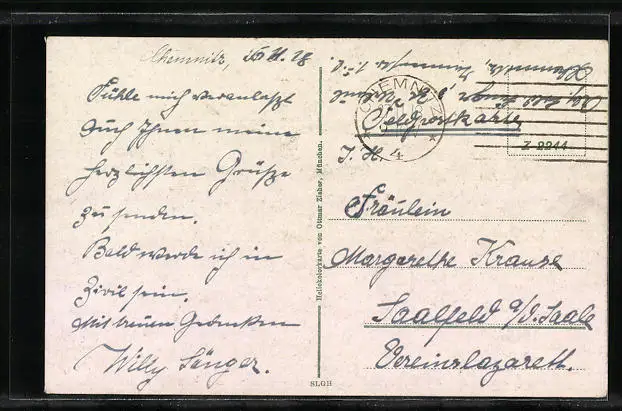 Chemnitz, 26.11.18
Fühle mich veranlaßt
Auch Ihnen meine
herzlichsten Grüße
zu senden.
Bald werde ich in
Zivil sein.
Mit treuen Gedenken
Willy Sänger.
Heliokolorkarte von Ottmar Zieher, München.
SLGH
CHEMNITZ
4
Feldpostkarte
Z 2244
Fräulein
Margarethe Krause
Saalfeld a/d. Saale
Vereinslazarett.